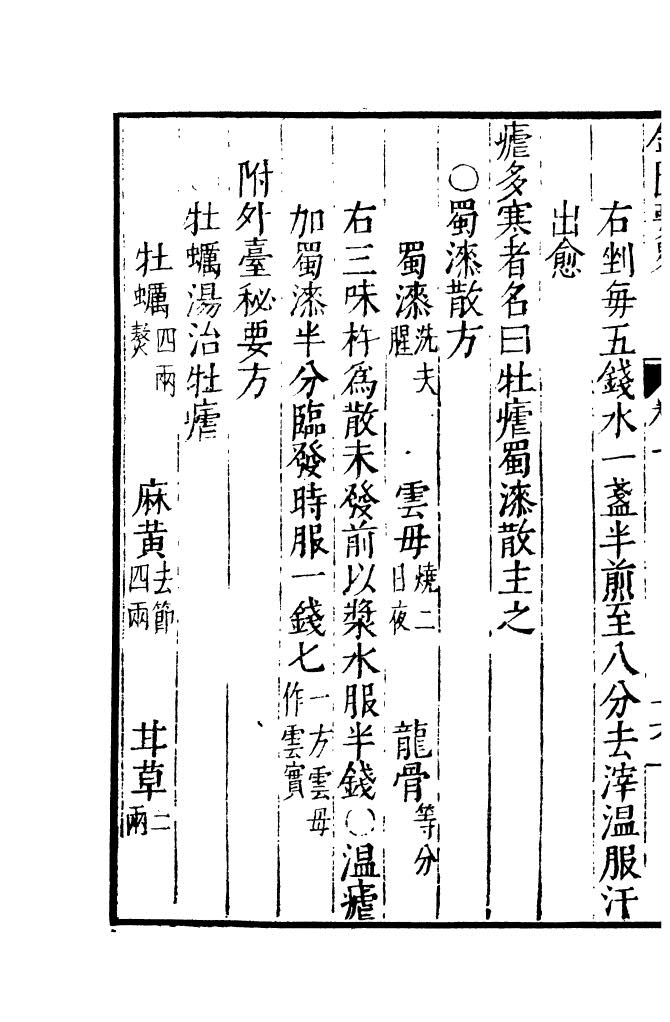 右剉每五錢水一盞半煎至八分去滓溫服汗
出愈
瘧多寒者名曰牡瘧蜀漆散主之
○蜀漆散方
蜀漆洗去腥　雲母燒二日夜　龍骨等分
右三味杵爲散未發前以漿水服半錢○溫瘧
加蜀漆半分臨發時服一錢七一方雲母作雲實
附外臺秘要方
牡蠣湯治牡瘧
牡蠣四兩熬　麻黃去節四兩　甘草二兩